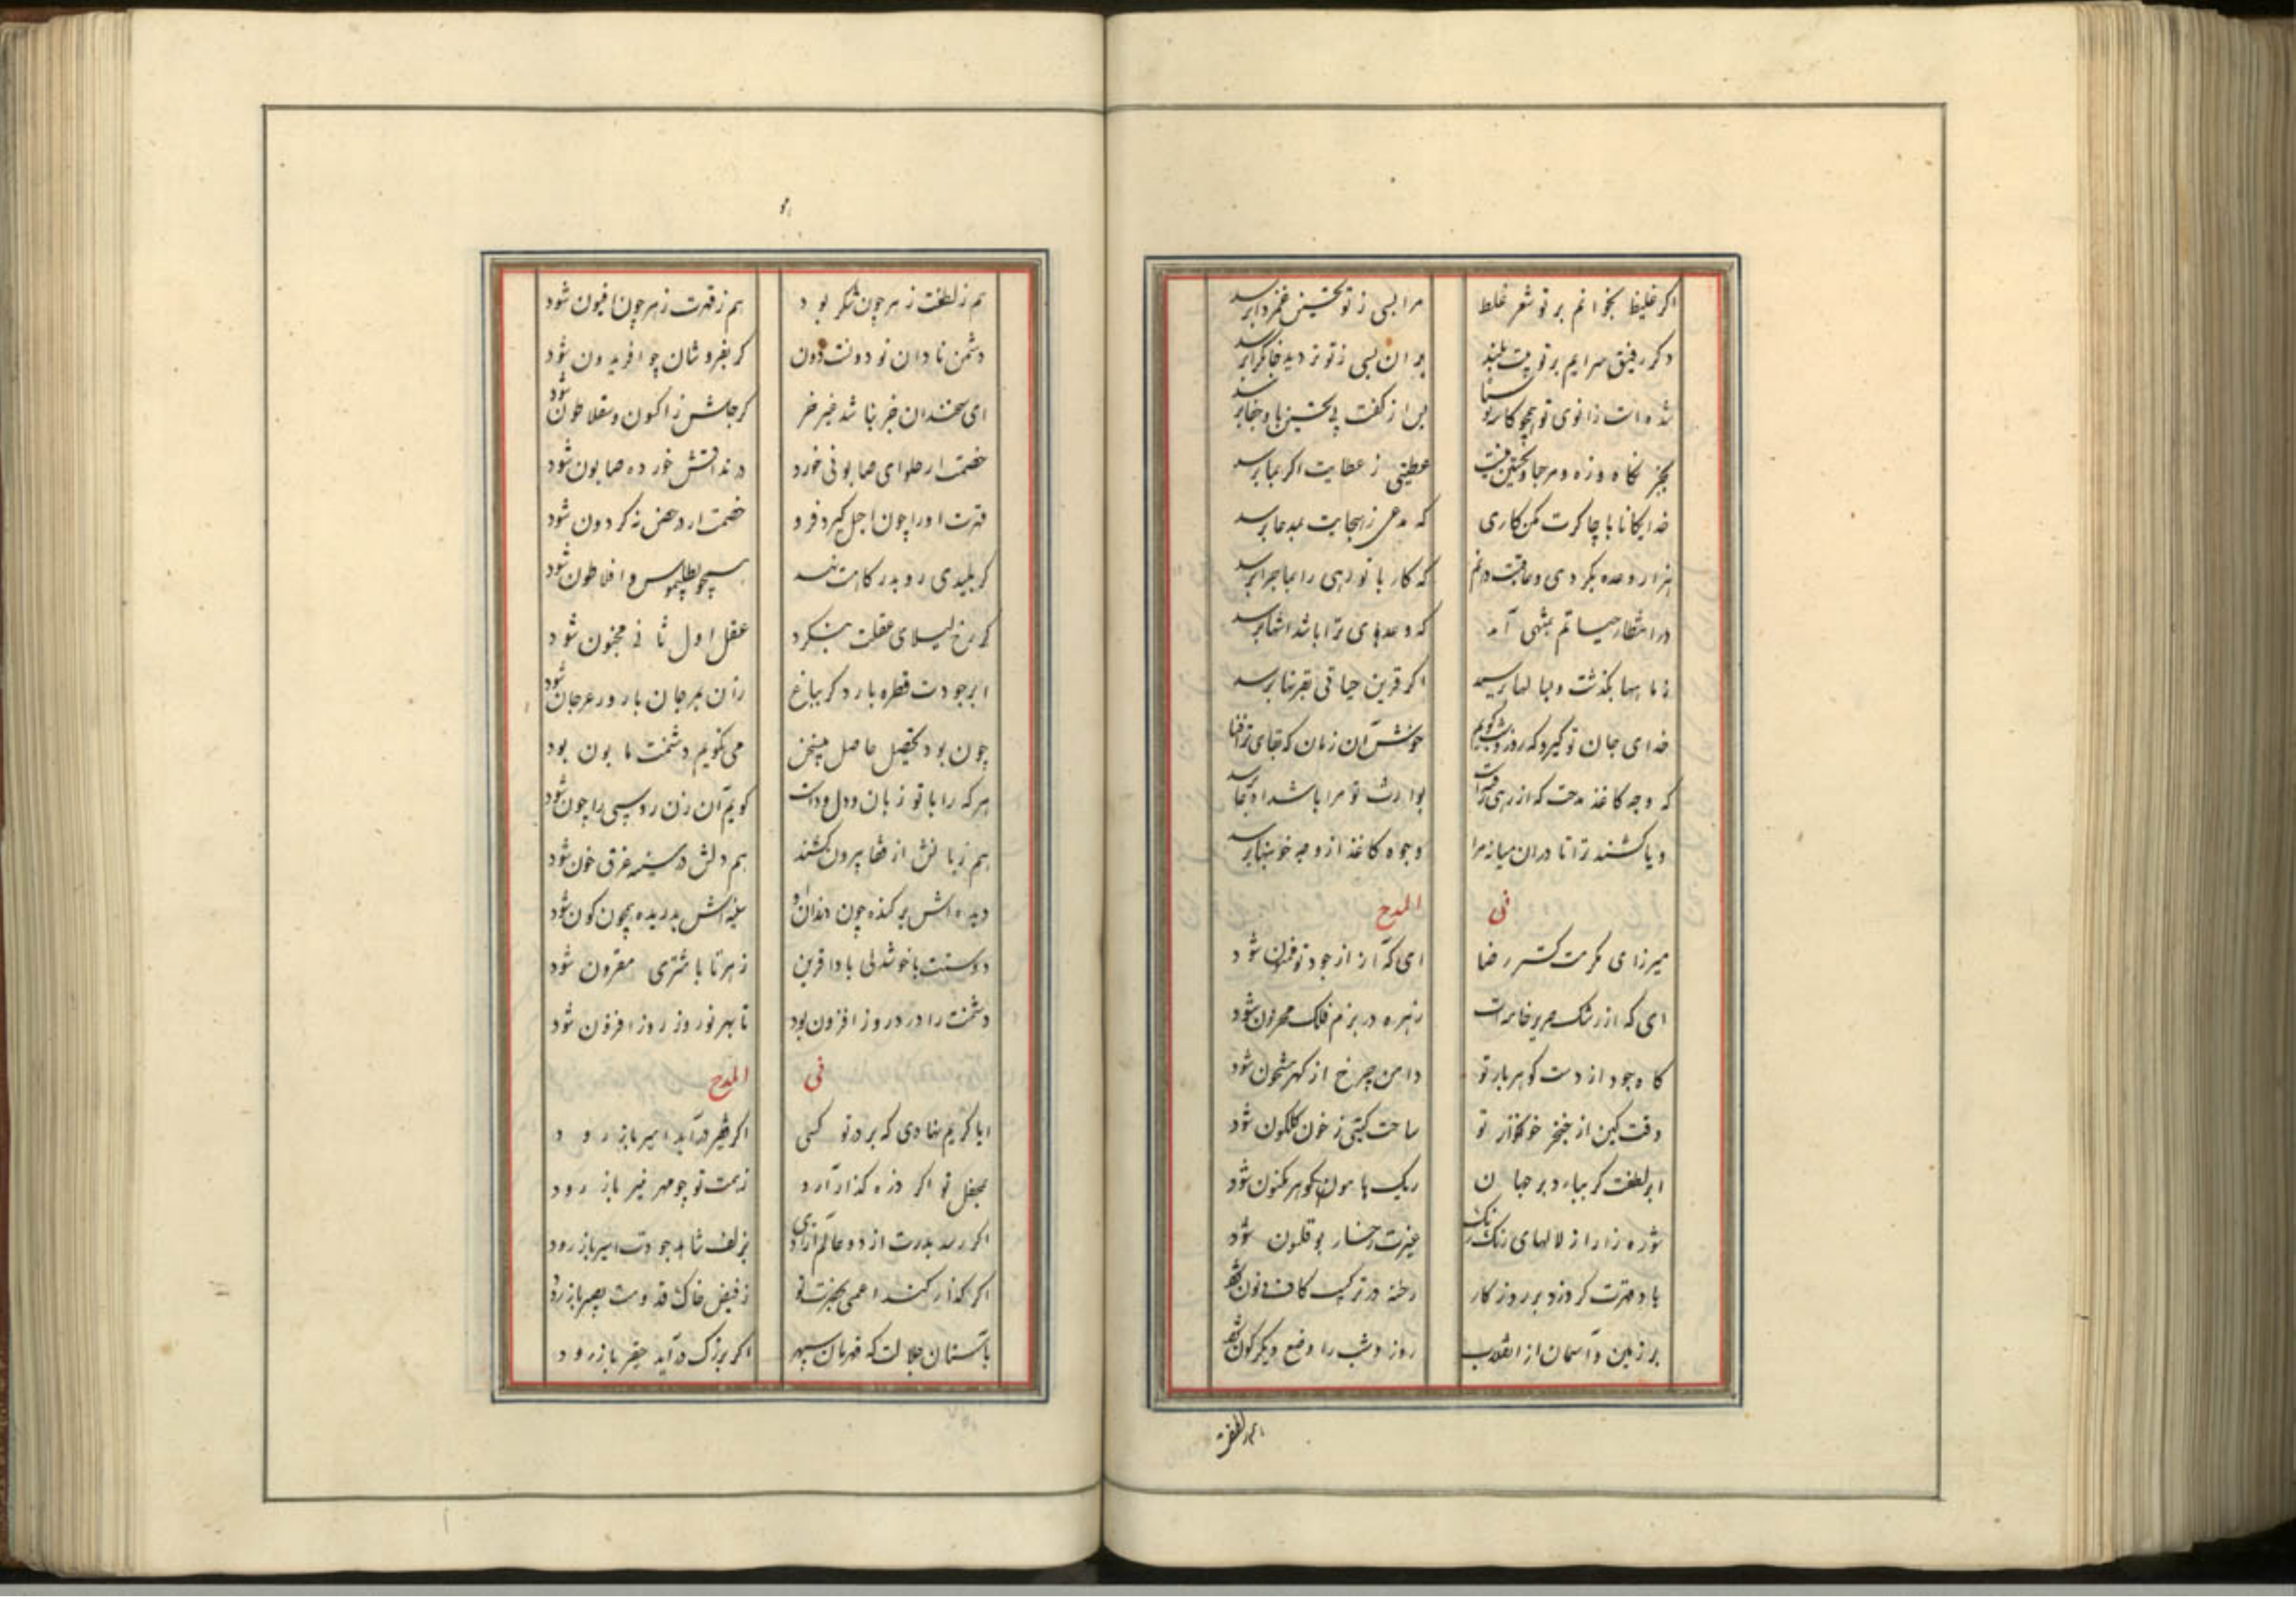 اکر غلیظ بخوانم بر تو شعر غلط مرا بسی ز تو تحسین غمزدا برسد
دکر رفیق سرایم بر تو پست بلند بر ان بسی ز تو تردید جانکزا برسد
شده است زانوی تو همچو کاسه پس از کفت پی تحسین بما
بجز نکاه و زه و مرحبا و تحسین نیست عطیتی ز عطایت اکر بما برسد
خدایکانا با چاکرت مکن کاری که مدعی ز هجایت بمدعا برسد
هزار وعده بکردی و عاقبت دانم که کار با تو رهی را بماجرا برسد
در انتظار حیاتم بمنتهی آمد که وعدهای ترا باشد انتها برسد
زماهها بکذشت و بسالها برسید اکر قرین حیاتی بقرنها برسد
خدای جان تو کیرد که روز و شب کویم خوش آن زمان که بقای ترا فنا برسد
که وجه کاغذ مدحت که از رهی بوارث تو مرا باشد
و یا کشند ترا تا در ان میانه مرا وجوه کاغذ از وجه خونبها برسد
فی المدح
میرزای مکرمت کستر رضا ای که آز از جود تو قارون شود
ای که از رشک صریر خامه‌ات زهره در بزم فلک محزون شود
کاه جود از دست کوهربار تو دامن چرخ از کهر مشحون شود
وقت کین از خنجر خونخوار تو ساحت کیتی ز خون کلکون شود
ابر لطفت کر ببارد بر جهان ریک هامون کوهر مکنون شود
شوره زار از لالهای رنک رنک غیرت رخسار بوقلمون شود
باد قهرت کر وزد بر روزکار رخنه در ترکیب کاف و نون شود
بر زمین و آسمان از انقلاب روز و شب را وضع دیکرکون شود
هم ز لطفت
هم ز لطفت زهر چون شکر بود هم ز قهرت زهر چون افیون شود
دشمن نادان تو دونست دون کر بفر و شان چو افریدون شود
ای سخندان خر نباشد غیر خر کر جلش ز اکسون و سقلاطون شود
خصمت ار حلوای صابونی خورد در مذاقش خورده صابون شود
قهرت او را چون اجل کیرد فرو خصمت ار در حصن نه کردون شود
کر بلیدی رو بدرکاهت نهد همچو بطلیموس و افلاطون شود
کر رخ لیلای عقلت بنکرد عقل اول ثانی مجنون شود
ابر جودت قطره بارد کر بباغ
چون بود تحصیل حاصل این سخن می نکویم دشمنت مابون بود
هر که را با تو زبان و دل دو است کویم آن زن روسپی را چون شود
هم زبانش از قفا بیرون کشند هم دلش در سینه غرق خون شود
دیده‌اش بر کنده چون دندان سینه‌اش بدریده همچون کون شود
دوستت با خوشدلی بادا قرین زهره تا با مشتری مقرون شود
دشمنت را درد روز افزون بود تا بهر نوروز روز افزون شود
فی المدح
ایا کریم نهادی که بر در تو کسی اکر فقیر درآید امیر باز رود
بمحفل تو اکر ذره کذار آرد ز همت تو چو مهر منیر باز رود
اکر رسد بدرت از دو عالم آزادی بزلف شاهد جودت اسیر باز رود
اکر کذار کند اعمی بحضرت تو ز فیض خاک قدومت بصیر باز رود
بآستان جلالت که قهرمان سپهر اکر بزرک درآید حقیر باز رود